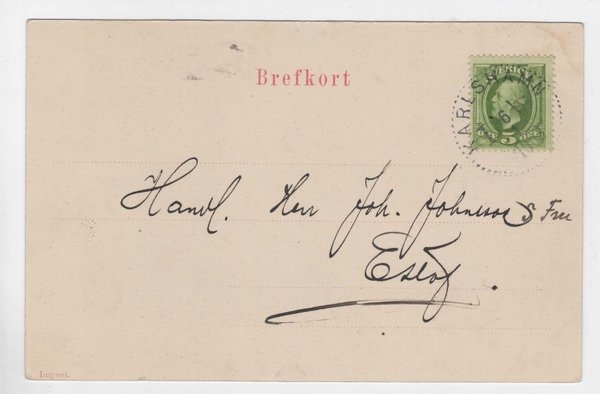 Brefkort
KARLSHAMN
5 ÖRE
Handl. Herr Joh. Johnsson S Fru
Eslöf.
Import.